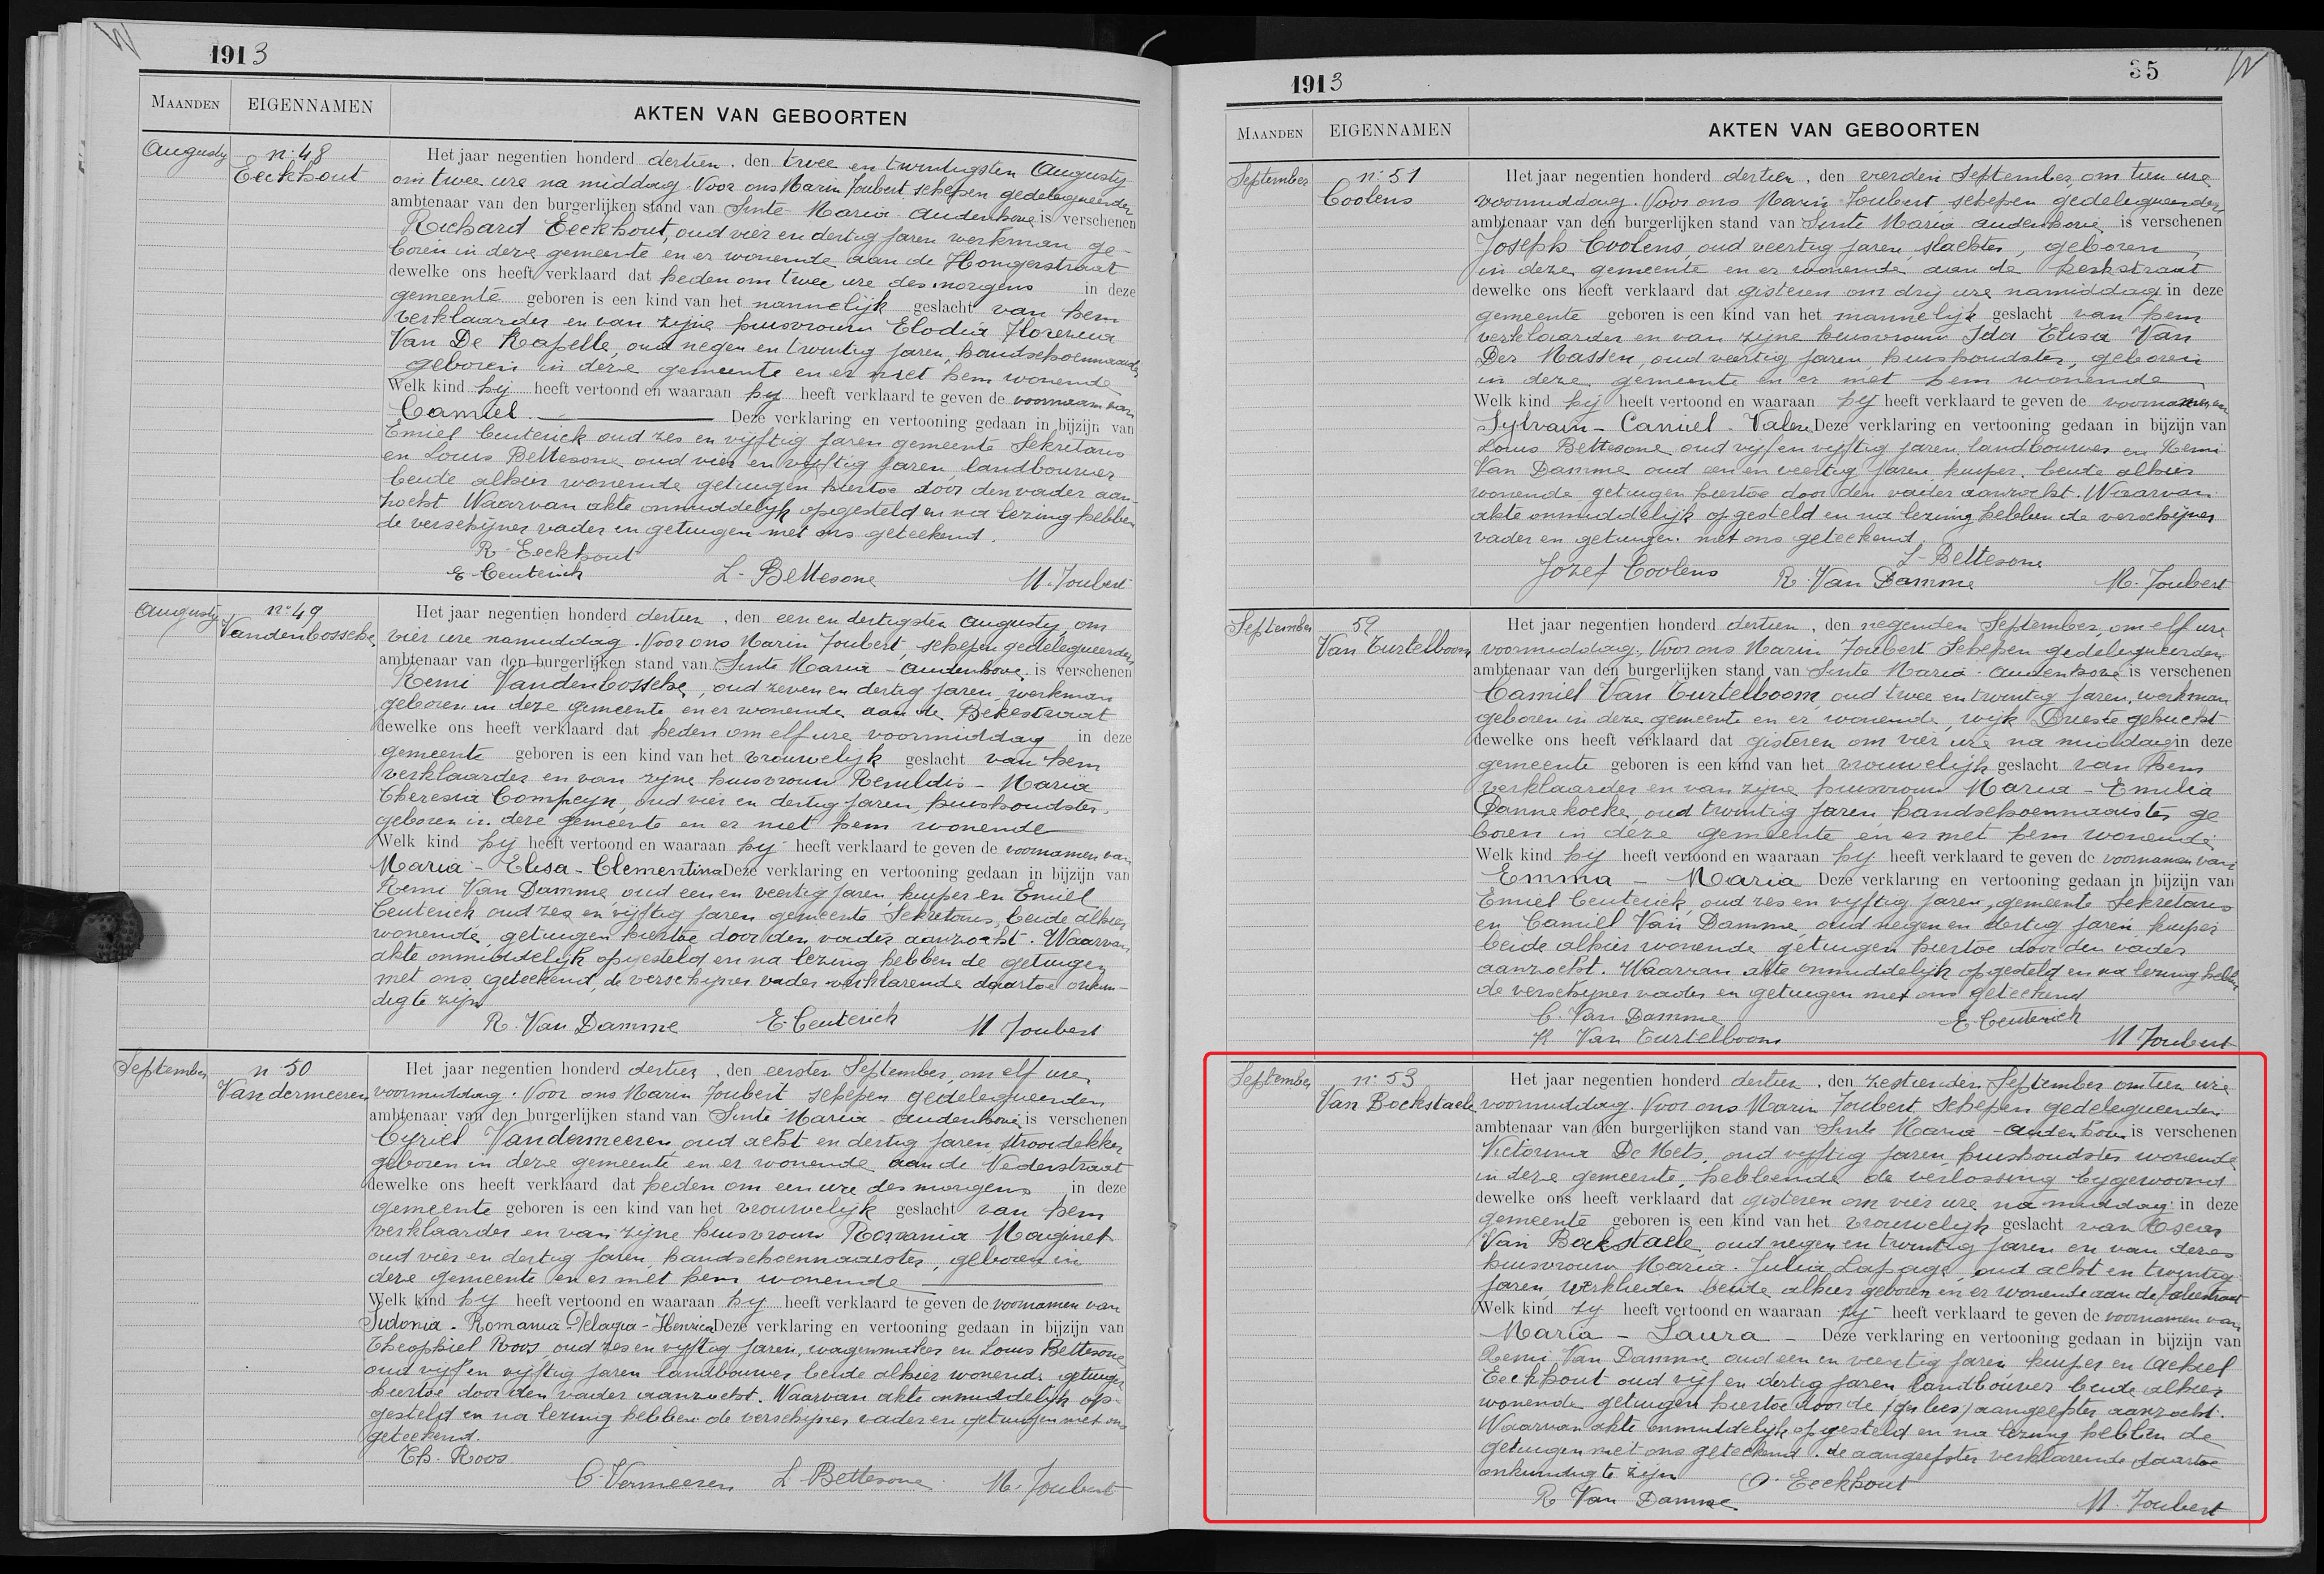 1913
MAANDEN EIGENNAMEN AKTEN VAN GEBOORTEN
Augusty n: 48 Eeckhout
Het jaar negentien honderd dertien, den twee en twintigsten Augusty
om twee ure na middag. Voor ons Marin Joubert schepen gedelegueerden
ambtenaar van den burgerlijken stand van Sinte-Maria-Audenhove is verschenen
Richard Eeckhout, oud vier en dertig jaren werkman ge-
boren in deze gemeente en er wonende aan de Hongerstraat
dewelke ons heeft verklaard dat heden om twee ure des morgens in deze
gemeente geboren is een kind van het mannelijk geslacht van hem
verklaarder en van zijne huisvrouw Elodia Florencia
Van De Kapelle, oud negen en twintig jaren, handschoenmaaister
geboren in deze gemeente en er met hem wonende
Welk kind hij heeft vertoond en waaraan hij heeft verklaard te geven de voornaam van
Camiel. Deze verklaring en vertooning gedaan in bijzijn van
Emiel Ceuterick oud zes en vijftig jaren gemeente Sekretaris
en Louis Bettesone oud vier en vijftig jaren, landbouwer
beide alhier wonende getuigen hiertoe door den vader aan-
zocht Waarvan akte onmiddelijk opgesteld en na lezing hebben
de verschijner vader en getuigen met ons geteekend.
R. Eeckhout
E. Ceuterick L. Bettesone M. Joubert
Augusty n: 49 Vandenbossche
Het jaar negentien honderd dertien, den een en dertigsten Augusty om
vier ure namiddag. Voor ons Marin Joubert, schepen gedelegueerden
ambtenaar van den burgerlijken stand van Sinte Maria-Audenhove is verschenen
Remi Vandenbossche, oud zeven en dertig jaren, werkman
geboren in deze gemeente en er wonende aan de Bekestraat
dewelke ons heeft verklaard dat heden om elf ure voormiddag in deze
gemeente geboren is een kind van het vrouwelijk geslacht van hem
verklaarder en van zijne huisvrouw Renildis-Maria
Theresia Compeyn, oud vier en dertig jaren, huishoudster,
geboren in deze gemeente en er met hem wonende
Welk kind hij heeft vertoond en waaraan hij heeft verklaard te geven de voornamen van
Maria-Elisa-Clementina Deze verklaring en vertooning gedaan in bijzijn van
Remi Van Damme, oud een en veertig jaren, kuiper en Emiel
Ceuterick oud zes en vijftig jaren gemeente Sekretaris, beide alhier
wonende, getuigen hiertoe door den vader aanzocht. Waarvan
akte onmiddelijk opgesteld en na lezing hebben de getuigen
met ons geteekend, de verschijner vader verklarende daartoe onkun-
dig te zijn
R. Van Damme E. Ceuterick M Joubert
September n: 50 Vandermeeren
Het jaar negentien honderd dertien, den eersten September, om elf ure
voormiddag. Voor ons Marin Joubert schepen gedelegueerden
ambtenaar van den burgerlijken stand van Sinte Maria-Audenhove is verschenen
Cyriel Vandermeeren oud acht en dertig jaren, stroodekker
geboren in deze gemeente en er wonende aan de Nederstraat
dewelke ons heeft verklaard dat heden om een ure des morgens in deze
gemeente geboren is een kind van het vrouwelijk geslacht van hem
verklaarder en van zijne huisvrouw Romania Mauginet
oud vier en dertig jaren, handschoenmaaister, geboren in
deze gemeente en er met hem wonende
Welk kind hij heeft vertoond en waaraan hij heeft verklaard te geven de voornamen van
Sidonia-Romania-Pelagia-Henrica Deze verklaring en vertooning gedaan in bijzijn van
Theophiel Roos oud zes en vijftig jaren, wagenmaker en Louis Bettesone
oud vijf en vijftig jaren landbouwer beide alhier wonende getuigen
hiertoe door den vader aanzocht. Waarvan akte onmiddelijk op-
gesteld en na lezing hebben de verschijner vader en getuigen met ons
geteekend.
Th. Roos
C. Vermeeren L. Bettesone M. Joubert
1913 35
MAANDEN EIGENNAMEN AKTEN VAN GEBOORTEN
September n: 51 Coolens
Het jaar negentien honderd dertien, den vierden September, om tien ure
voormiddag. Voor ons Marin Joubert, schepen gedelegueerden
ambtenaar van den burgerlijken stand van Sinte Maria Audenhove is verschenen
Joseph Coolens, oud veertig jaren, slachter, geboren
in deze gemeente en er wonende aan de Kerkstraat
dewelke ons heeft verklaard dat gisteren om drij ure namiddag in deze
gemeente geboren is een kind van het mannelijk geslacht van hem
verklaarder en van zijne huisvrouw Ida Elisa Van
Der Massen, oud veertig jaren, huishoudster, geboren
in deze gemeente en er met hem wonende
Welk kind hij heeft vertoond en waaraan hij heeft verklaard te geven de voornamen van
Sylvain-Camiel-Valere Deze verklaring en vertooning gedaan in bijzijn van
Louis Bettesone oud vijf en vijftig jaren, landbouwer en Remi
Van Damme oud een en veertig jaren kuiper, beide alhier
wonende getuigen hiertoe door den vader aanzocht. Waarvan
akte onmiddelijk opgesteld en na lezing hebben de verschijner
vader en getuigen met ons geteekend.
Jozef Coolens R. Van Damme L. Bettesone M. Joubert
September 52 Van Turtelboom
Het jaar negentien honderd dertien, den negenden September, om elf ure
voormiddag. Voor ons Marin Joubert Schepen gedelegueerden
ambtenaar van den burgerlijken stand van Sinte Maria-Audenhove is verschenen
Camiel Van Turtelboom, oud twee en twintig jaren, werkman
geboren in deze gemeente en er wonende, wijk Drieste gehucht
dewelke ons heeft verklaard dat gisteren om vier ure na middag in deze
gemeente geboren is een kind van het vrouwelijk geslacht van hem
verklaarder en van zijne huisvrouw Maria-Emilia
Pannekoeke, oud twintig jaren handschoenmaaister ge
boren in deze gemeente en er met hem wonende
Welk kind hij heeft vertoond en waaraan hij heeft verklaard te geven de voornamen van
Emma-Maria Deze verklaring en vertooning gedaan in bijzijn van
Emiel Ceuterick, oud zes en vijftig jaren, gemeente Sekretaris
en Camiel Van Damme, oud negen en dertig jaren kuiper
beide alhier wonende getuigen hiertoe door den vader
aanzocht. Waarvan akte onmiddelijk opgesteld en na lezing hebben
de verschijner vader en getuigen met ons geteekend
C. Van Damme E. Ceuterick
K. Van Turtelboom M Joubert
September n: 53 Van Bockstaele
Het jaar negentien honderd dertien, den zestienden September om tien ure
voormiddag. Voor ons Marin Joubert, schepen gedelegueerden
ambtenaar van den burgerlijken stand van Sinte Maria-Audenhove is verschenen
Victorina De Mets, oud vijftig jaren, huishoudster wonende
in deze gemeente, hebbende de verlossing bijgewoond
dewelke ons heeft verklaard dat gisteren om vier ure na middag in deze
gemeente geboren is een kind van het vrouwelijk geslacht van Oscar
Van Bockstaele, oud negen en twintig jaren en van dezes
huisvrouw Maria-Julia Lapage, oud acht en twintig
jaren, werklieden beide alhier geboren en er wonende aan de
Welk kind zij heeft vertoond en waaraan zij heeft verklaard te geven de voornamen van
Maria-Laura- Deze verklaring en vertooning gedaan in bijzijn van
Remi Van Damme oud een en veertig jaren kuiper en Achiel
Eeckhout oud vijf en dertig jaren, landbouwer beide alhier
wonende getuigen hiertoe door de aangeefster aanzocht.
Waarvan akte onmiddelijk opgesteld en na lezing hebben de
getuigen met ons geteekend. de aangeefster verklarende daartoe
onkundig te zijn
R. Van Damme Eeckhout M. Joubert